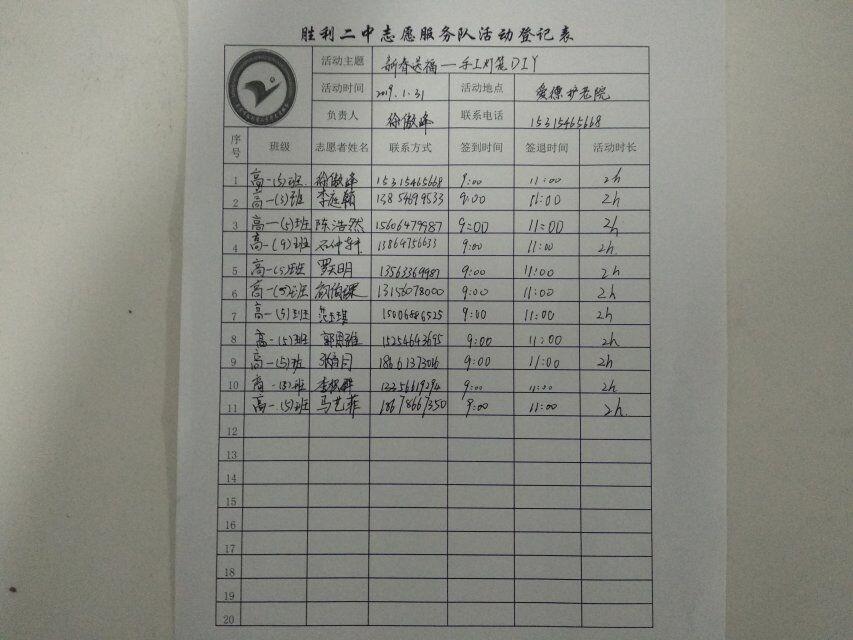 胜利二中志愿服务队活动登记表
活动主题 新春送福—手工灯笼DIY
活动时间 2019.1.31 活动地点 爱德护老院
负责人 徐傲峰 联系电话 15315465668
序号 班级 志愿者姓名 联系方式 签到时间 签退时间 活动时长
1 高一(5)班 徐傲峰 15315465668 9:00 11:00 2h
2 高一(3)班 李庭颖 13854699533 9:00 11:00 2h
3 高一(5)班 陈浩然 15606479987 9:00 11:00 2h
4 高一(9)班 石仲轩 13864756633 9:00 11:00 2h
5 高一(5)班 罗天明 13563369987 9:00 11:00 2h
6 高一(5)班 13156078000 9:00 11:00 2h
7 高一(5)班 15006886525 9:00 11:00 2h
8 高一(5)班 15254643695 9:00 11:00 2h
9 高一(5)班 18661373016 9:00 11:00 2h
10 高一(5)班 9:00 11:00 2h
11 高一(5)班 马艺菲 18678661350 9:00 11:00 2h
12
13
14
15
16
17
18
19
20